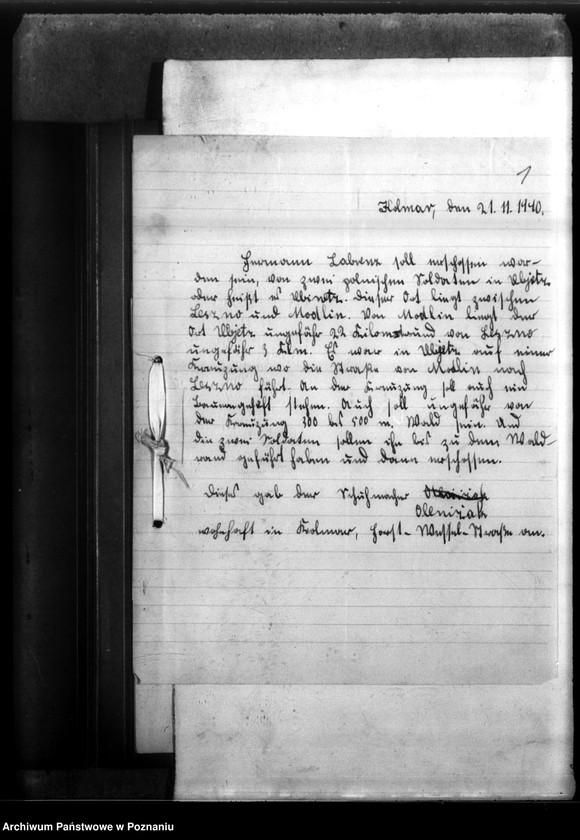 1
Kolmar, den 21.11.1940.
Hermann Labrenz soll erschossen wor-
den sein, von zwei polnischen Soldaten in Ubjetz
oder heißt es Ubinetz. Dieser Ort liegt zwischen
Leszno und Modlin. Von Modlin liegt der
Ort Ubjetz ungefähr 22 Kilom. und von Leszno
ungefähr 3 Klm. Es war in Ubjetz auf einer
Kreuzung wo die Straße von Modlin nach
Leszno führt. An der Kreuzung soll auch ein
Baumgehöft stehen. Auch soll ungefähr von
der Kreuzung 300 bis 500 m. Wald sein. Und
die zwei Soldaten sollen ihn bis zu dem Wald-
rand geführt haben und dann erschossen.
Dieses gab der Schuhmacher
Olenizak
wohnhaft in Kolmar, Horst-Wessel-Straße an.
Archiwum Państwowe w Poznaniu